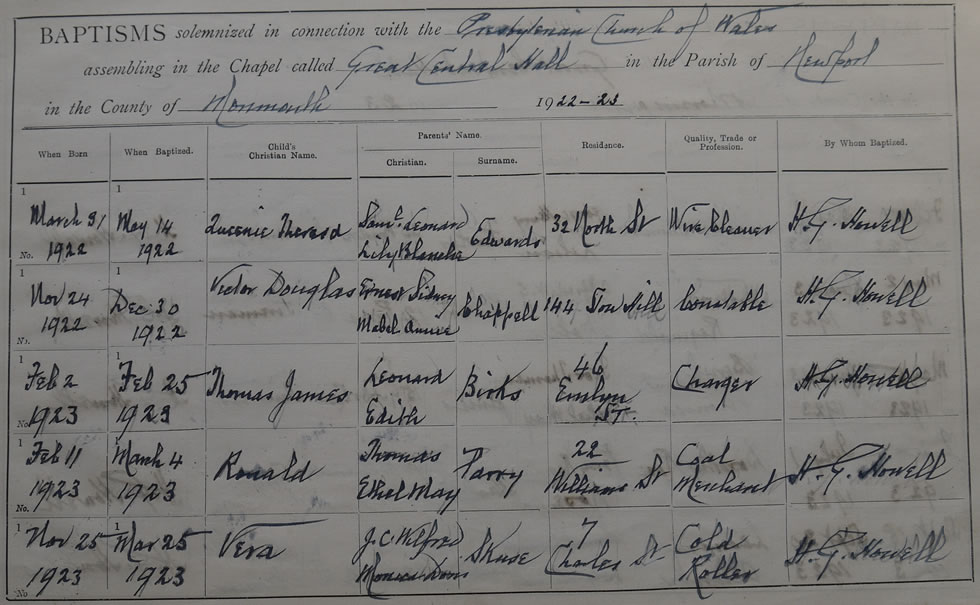 BAPTISMS solemnized in connection with the Presbyterian Church of Wales
assembling in the Chapel called Great Central Hall in the Parish of Newport
in the County of Monmouth 1922-23
When Born When Baptized. Child's Christian Name. Parents' Name. Christian. Surname. Residence. Quality, Trade or Profession. By Whom Baptized.
1 1
March 31 May 14 Saml Leonard Edwards 32 North St Wire Cleaner H. G. Howell
No. 1922 1922 Lily Blanche
1 1
Nov 24 Dec 30 Victor Douglas Ernest Sidney Chappell 144 Constable H. G. Howell
1922 1922 Mabel
No.
1 1
Feb 2 Feb 25 Thomas James Leonard Birks 46 Charger H. G. Howell
No. 1923 1923 Edith Evelyn St.
1 1
Feb 11 March 4 Ronald Thomas Parry 22 Coal H. G. Howell
1923 1923 Ethel May William St Merchant
No.
1 1
Nov 25 Mar 25 Vera J. C. Wilfred Skuse 7 Cold H. G. Howell
1923 1923 Monica Charles St Roller
No